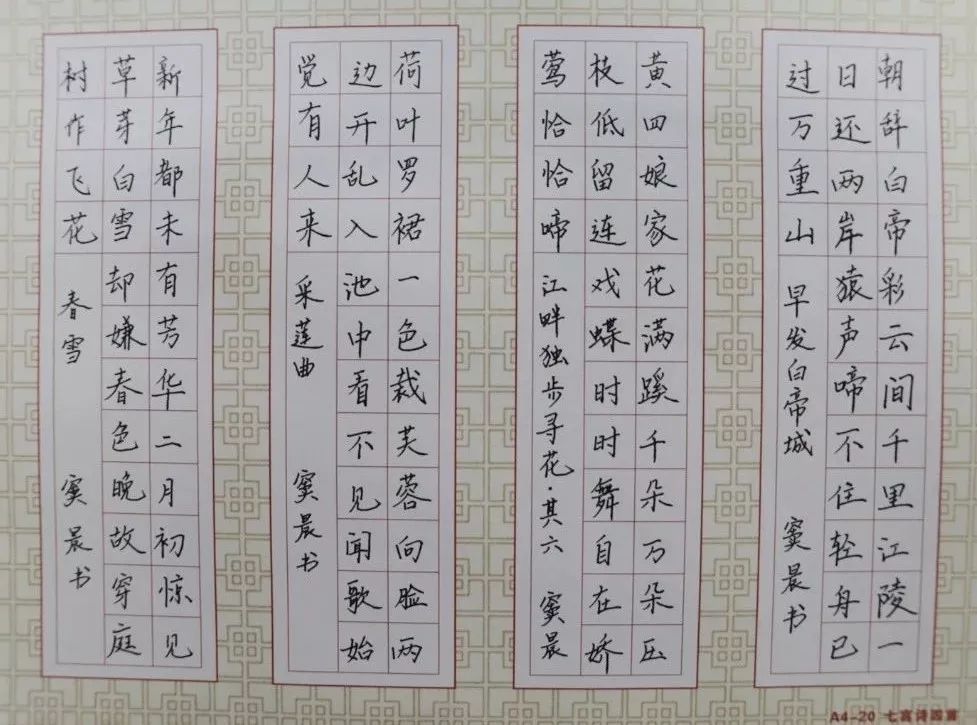 朝辞白帝彩云间千里江陵一
日还两岸猿声啼不住轻舟已
过万重山 早发白帝城 窦晨书
黄四娘家花满蹊千朵万朵压
枝低留连戏蝶时时舞自在娇
莺恰恰啼 江畔独步寻花·其六 窦晨
荷叶罗裙一色裁芙蓉向脸两
边开乱入池中看不见闻歌始
觉有人来 采莲曲 窦晨书
新年都未有芳华二月初惊见
草芽白雪却嫌春色晚故穿庭
树作飞花 春雪 窦晨书
A4-20 七言诗